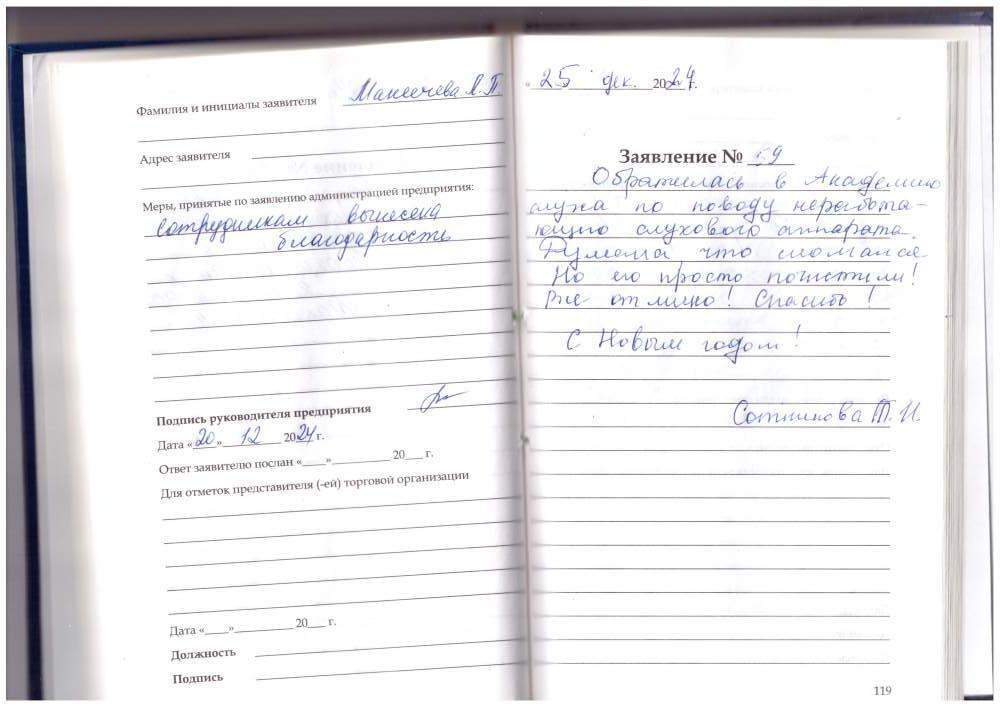 Фамилия и инициалы заявителя Макеичева Л.П
Адрес заявителя
Меры, принятые по заявлению администрацией предприятия:
сотрудникам вынесена
благодарность
Подпись руководителя предприятия
Дата «20» 12 2024 г.
Ответ заявителю послан «____»__________ 20___ г.
Для отметок представителя (-ей) торговой организации
Дата «____»__________ 20___ г.
Должность
Подпись
« 25 дек. 2024г.
Заявление № 59
Обратилась в Академию
слуха по поводу неработа-
ющего слухового аппарата.
Думала что сломался
Но его просто почистили!
Все отлично! Спасибо!
С Новым годом!
Сотникова Т. И.
119